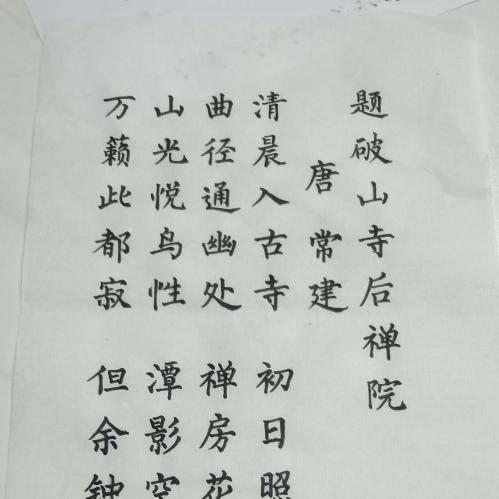 题破山寺后禅院
唐 常建
清晨入古寺 初日照
曲径通幽处 禅房花
山光悦鸟性 潭影空
万籁此都寂 但余钟